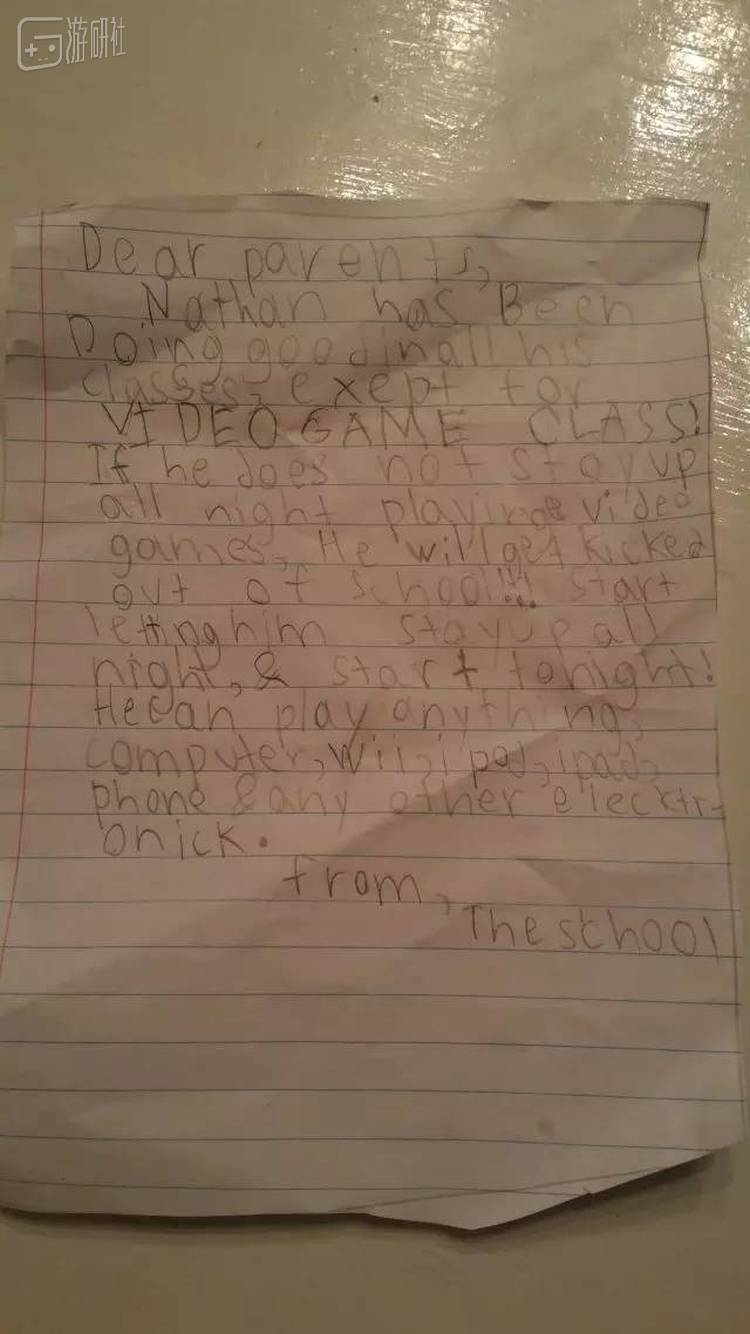 游研社
Dear parents,
Nathan has Been
Doing good in all his
classes, exept for
VIDEO GAME CLASS!
If he does not stay up
all night playing video
games, He will get kicked
out of school!!! start
letting him stay up all
night, & start tonight!
He can play anything,
computer, Wii, ipod, ipad,
phone & any other elecktr-
onick.
from,
The school